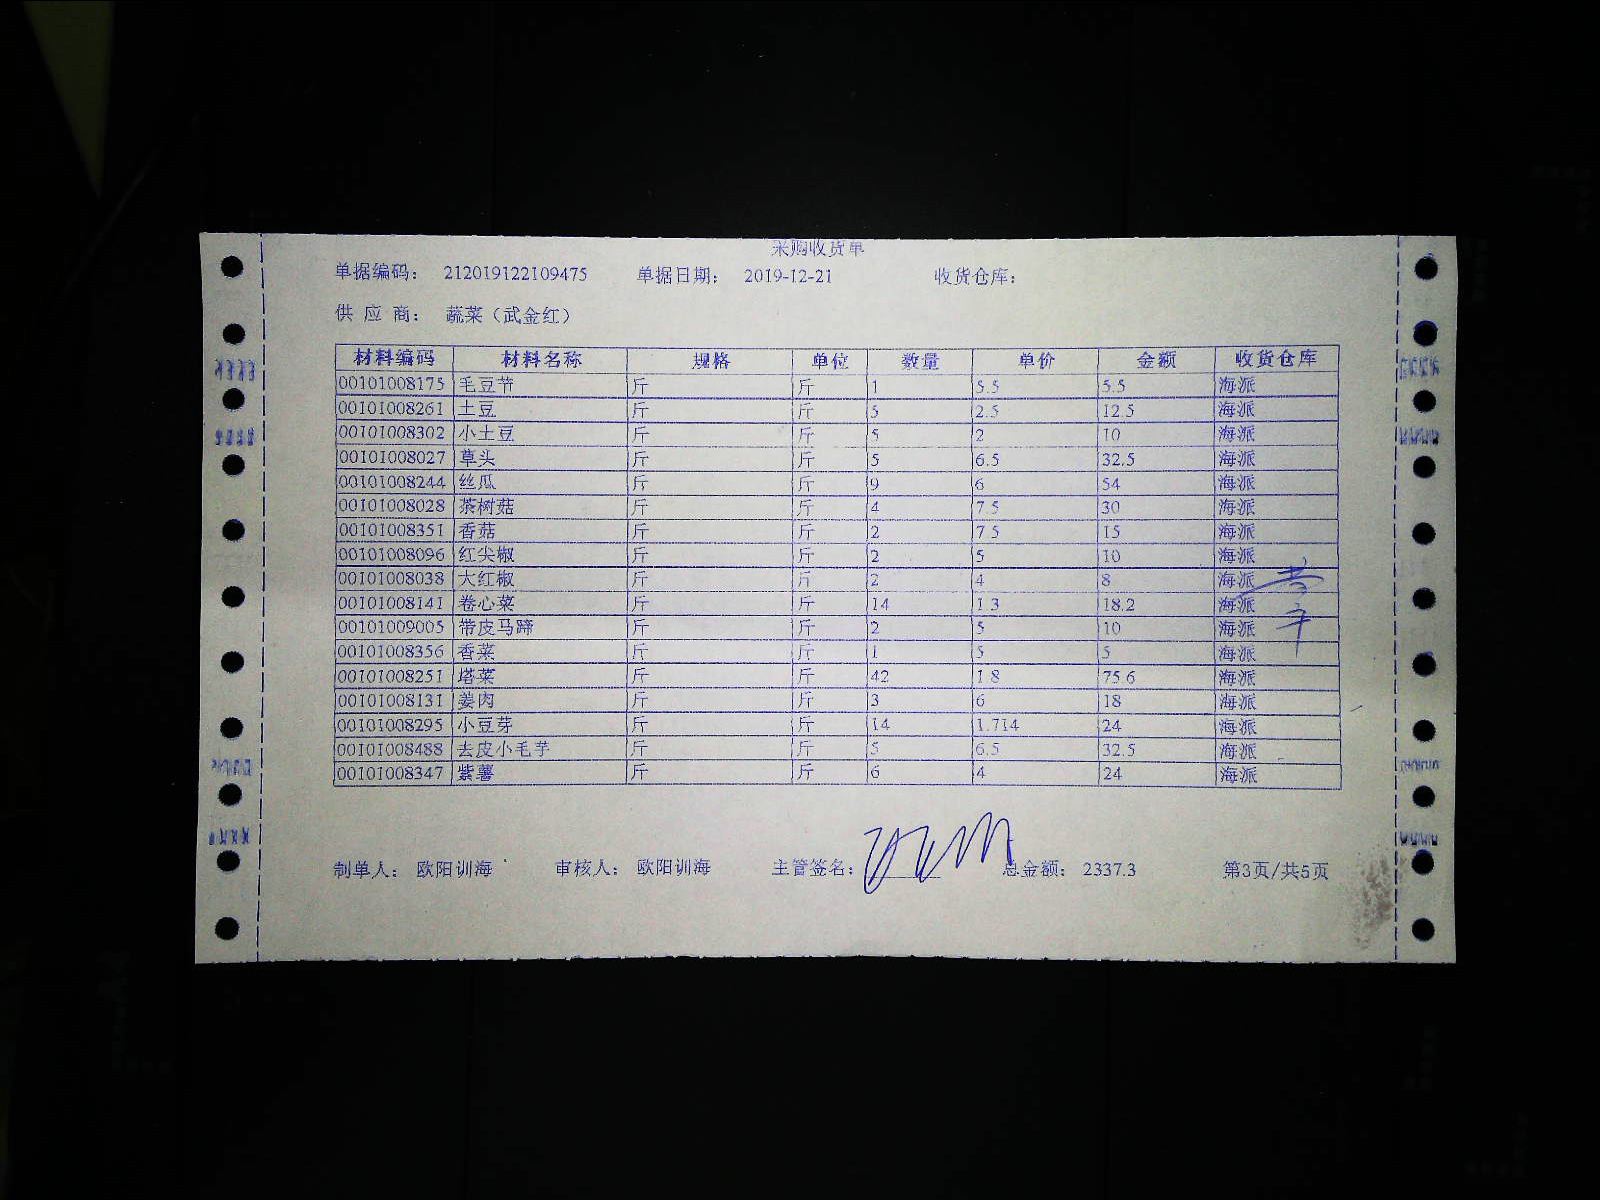 采购收货单
单据编码： 212019122109475 单据日期： 2019-12-21 收货仓库：
供 应 商： 蔬菜（武金红）
材料编码 材料名称 规格 单位 数量 单价 金额 收货仓库
00101008175 毛豆节 斤 斤 1 5.5 5.5 海派
00101008261 土豆 斤 斤 5 2.5 12.5 海派
00101008302 小土豆 斤 斤 5 2 10 海派
00101008027 草头 斤 斤 5 6.5 32.5 海派
00101008244 丝瓜 斤 斤 9 6 54 海派
00101008028 茶树菇 斤 斤 4 7.5 30 海派
00101008351 香菇 斤 斤 2 7.5 15 海派
00101008096 红尖椒 斤 斤 2 5 10 海派
00101008038 大红椒 斤 斤 2 4 8 海派
00101008141 卷心菜 斤 斤 14 1.3 18.2 海派
00101009005 带皮马蹄 斤 斤 2 5 10 海派
00101008356 香菜 斤 斤 1 5 5 海派
00101008251 塔菜 斤 斤 42 1.8 75.6 海派
00101008131 姜肉 斤 斤 3 6 18 海派
00101008295 小豆芽 斤 斤 14 1.714 24 海派
00101008488 去皮小毛芋 斤 斤 5 6.5 32.5 海派
00101008347 紫薯 斤 斤 6 4 24 海派
制单人： 欧阳训海 审核人： 欧阳训海 主管签名： 总金额： 2337.3 第3页/共5页